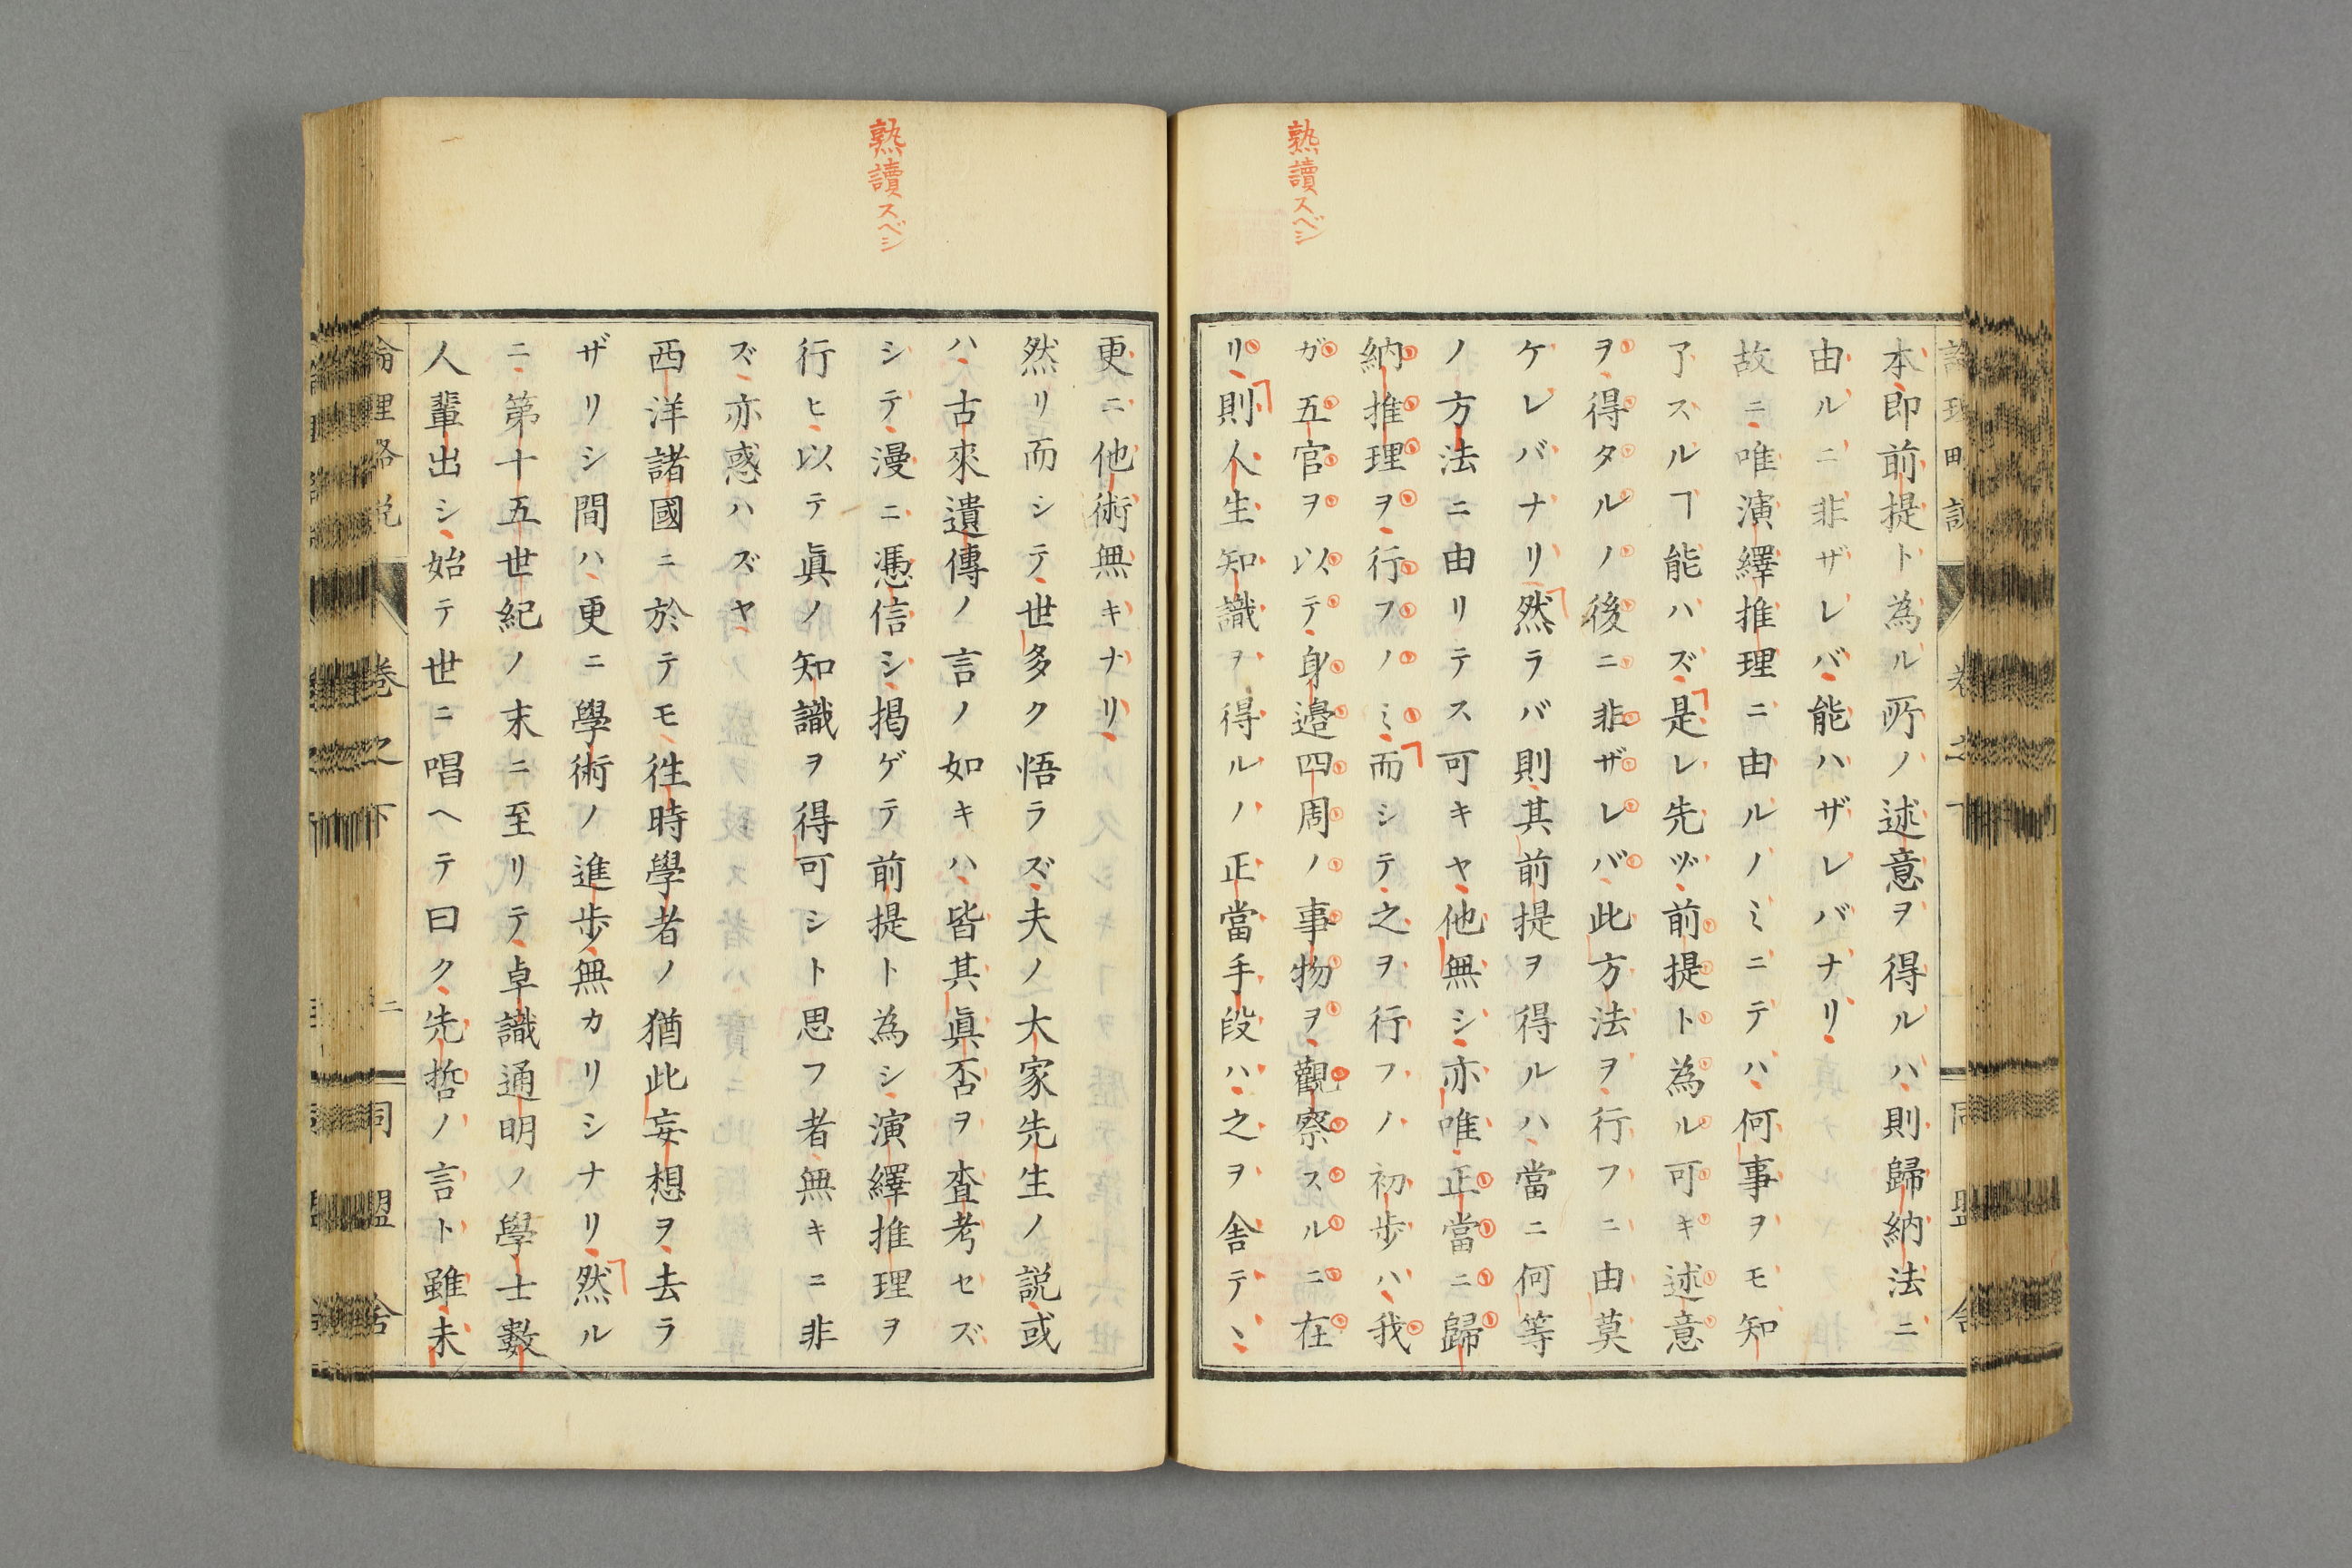 熟讀スベシ
本即前提ト為ル所ノ述意ヲ得ルハ則歸納法ニ
由ルニ非ザレバ能ハザレバナリ
故ニ唯演繹推理ニ由ルノミニテハ何事ヲモ知
了スルヿ能ハズ是レ先ヅ前提ト為ル可キ述意
ヲ得タルノ後ニ非ザレバ此方法ヲ行フニ由莫
ケレバナリ然ラバ則其前提ヲ得ルハ當ニ何等
ノ方法ニ由リテス可キヤ他無シ亦唯正當ニ歸
納推理ヲ行フノミ而シテ之ヲ行フノ初歩ハ我
ガ五官ヲ以テ身邉四周ノ事物ヲ觀察スルニ在
リ則人生知識ヲ得ルノ正當手段ハ之ヲ舎テヽ
熟讀スベシ
更ニ他術無キナリ
然リ而シテ世多ク悟ラズ夫ノ大家先生ノ説或
ハ古來遺傳ノ言ノ如キハ皆其眞否ヲ査考セズ
シテ漫ニ憑信シ掲ゲテ前提ト為シ演繹推理ヲ
行ヒ以テ眞ノ知識ヲ得可シト思フ者無キニ非
ズ亦惑ハズヤ
西洋諸國ニ於テモ徃時學者ノ猶此妄想ヲ去ラ
ザリシ間ハ更ニ學術ノ進歩無カリシナリ然ル
ニ第十五世紀ノ末ニ至リテ卓識通明ノ學士數
人輩出シ始テ世ニ唱ヘテ曰ク先哲ノ言ト雖未
論理略説 卷之下 二 同盟舎